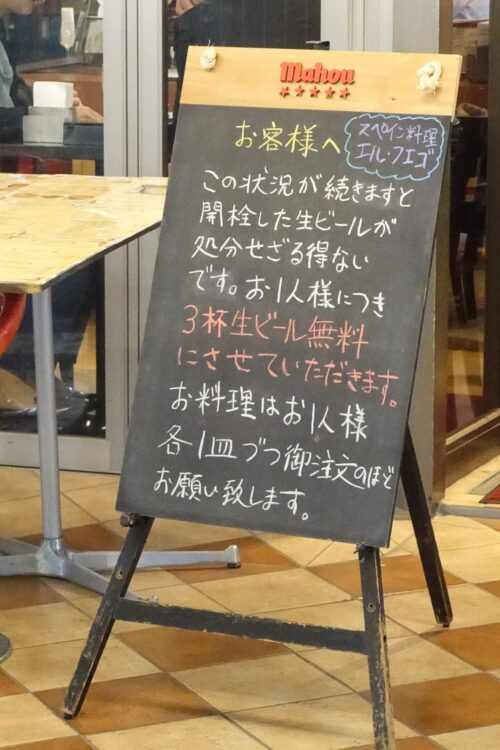 mahou
お客様へ
スペイン料理
エル・フエゴ
この状況が続きますと
開栓した生ビールが
処分せざる得ない
です。お1人様につき
3杯生ビール無料
にさせていただきます。
お料理はお1人様
各1皿づつ御注文のほど
お願い致します。